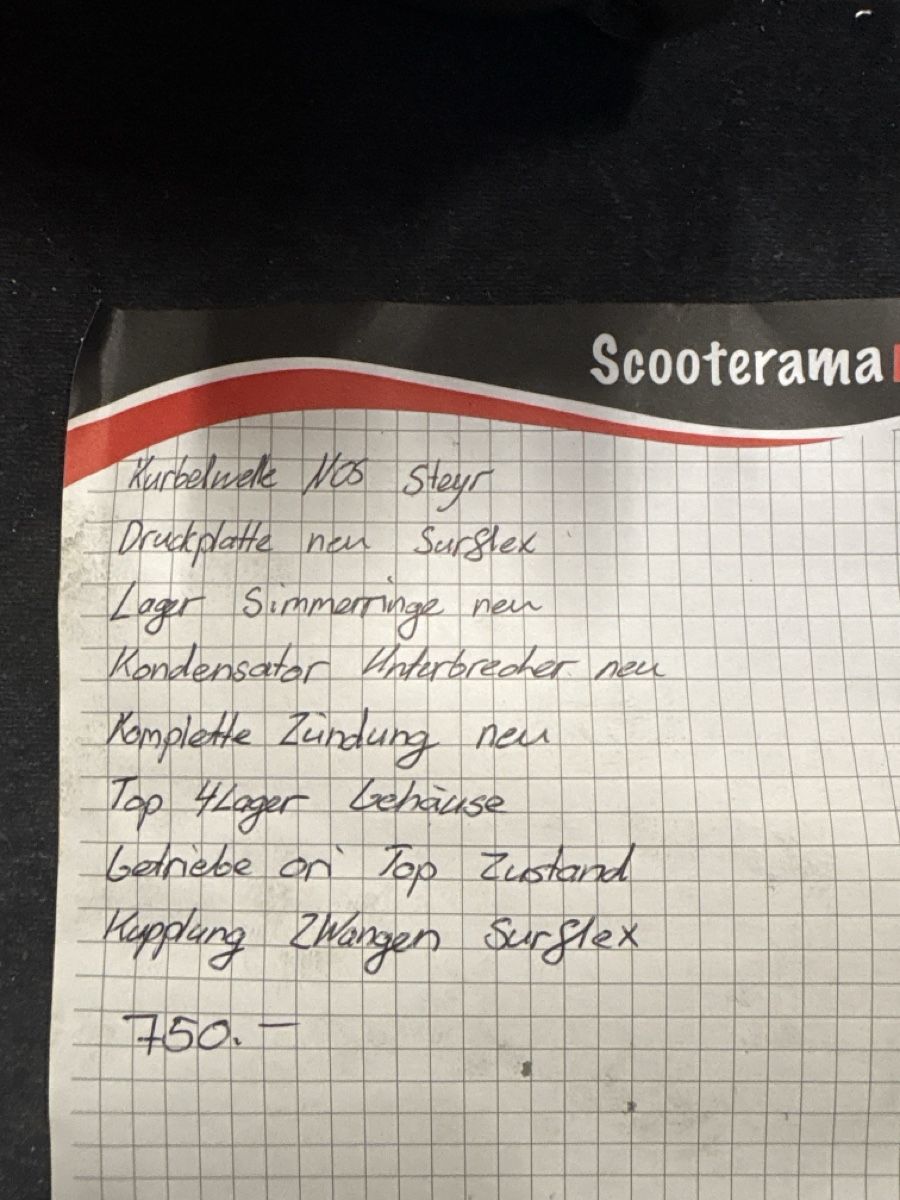 Scooterama
Kurbelwelle NOS Steyr
Druckplatte neu Surflex
Lager Simmerringe neu
Kondensator Unterbrecher neu
Komplette Zündung neu
Top 4Lager Gehäuse
Getriebe ori Top Zustand
Kupplung 2Wangen Surflex
750.—